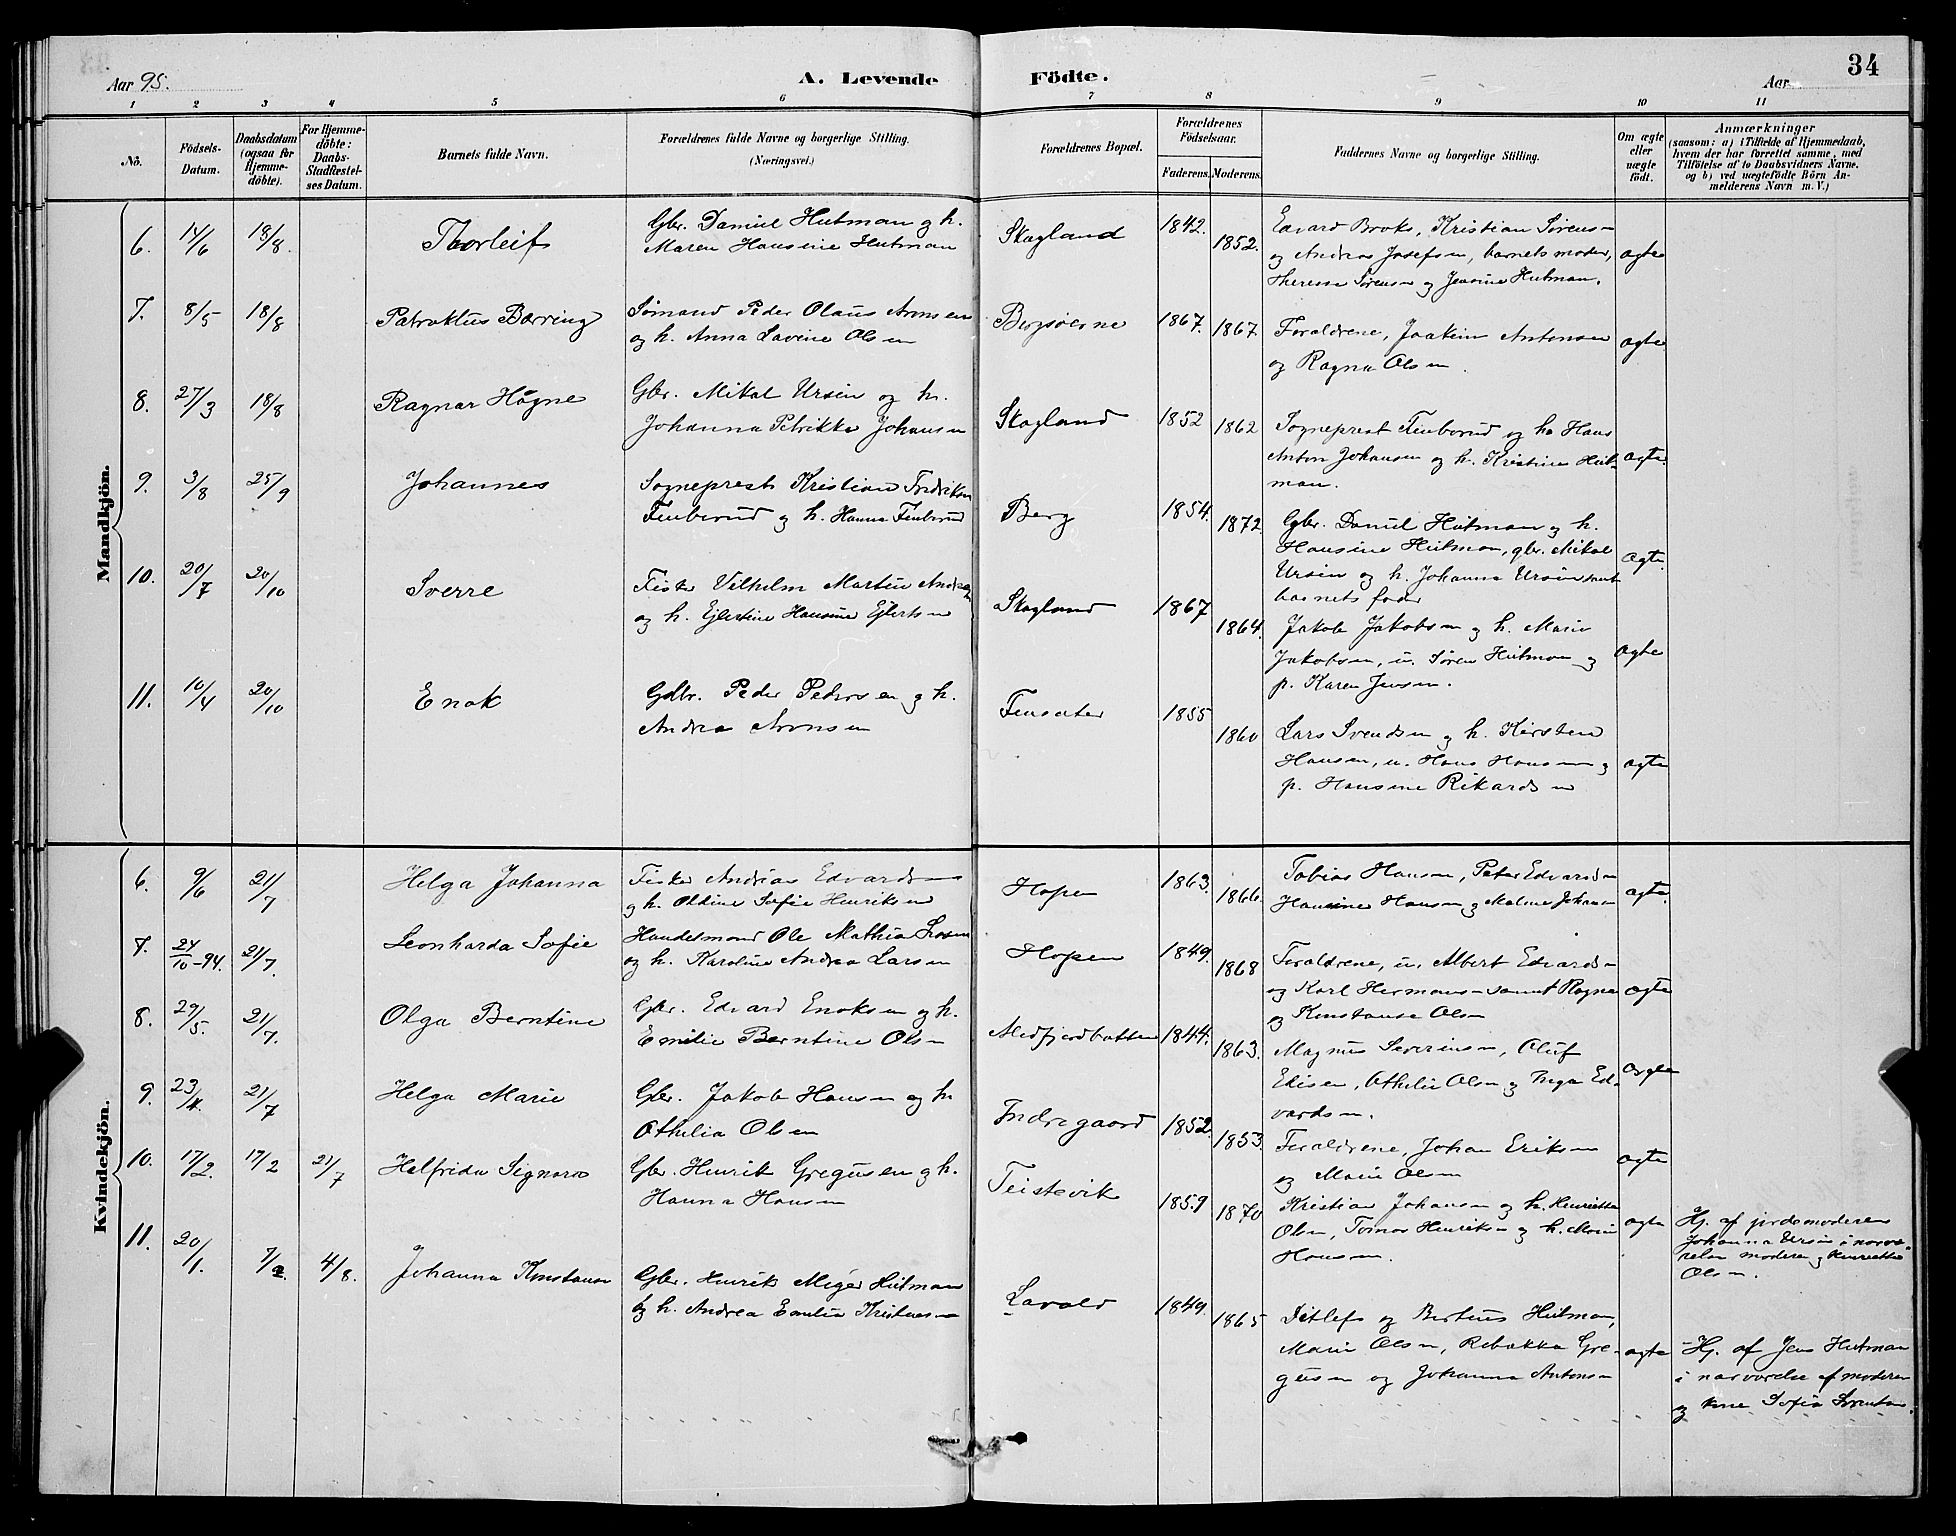 Aar 95.
A. Levende Födte.
Aar
34
1 2 3 4 5 6 7 8 9 10 11
Nô.
Födsels-Datum.
Daabsdatum (ogsaa for Hjemme-döbte).
For Hjemme-döbte: Daabs-Stadfæstel-ses Datum.
Barnets fulde Navn.
Forældrenes fulde Navne og borgerlige Stilling. (Næringsvei.)
Forældrenes Bopæl.
Forældrenes Födselsaar.
Faderens. Moderens.
Faddernes Navne og borgerlige Stilling.
Om ægte eller uægte födt.
Anmærkninger
(saasom: a) i Tilfælde af Hjemmedaab, hvem der har forrettet samme, med Tilföielse af to Daabsvidners Navne, og b) ved uægtefödte Börn An-melderens Navn m. V.)
Mandkjön.
6. 14/6 18/8. Thorleif
Gbr. Daniel Hutman og h.
Maren Hansine Hutman
Skagland 1842. 1852.
Edvard Broks, Kristian Sørens-
og Andreas Josefsen, barnets moder,
Therese Sørensen og Jensine Hutman.
ægte
7. 8/5 18/8 Petraktus Børring
Sømand Peder Olaus Aronsen
og h. Anna Lavine Olsen
Bergsøerne 1867. 1867.
Forældrene, Joakim Antonsen
og Ragna Olsen.
ægte
8. 27/3 18/8 Ragnar Høgne
Gbr. Mikal Ursin og h.
Johanna Petrikke Johansen
Skagland 1852 1862
Sogneprest Finberud og h. Hans
Anton Johansen og h. Kristine Hut-
man.
ægte.
9. 3/8 25/9 Johannes
Sogneprest Kristian Fredriksen
Finberud og h. Hanna Finberud
Berg 1854. 1872
Gbr. Daniel Hutman og h.
Hansine Hutman, gbr. Mikal
Ursin og h. Johanna Ursin samt
barnets fader
ægte.
10. 20/7 20/10 Sverre
Fisker Vilhelm Martin Andreassen
og h. Ejlertine Hansine Ejlertsen
Skagland 1867 1864.
Jakob Jakobsen og h. Marie
Jakobsen, u. Søren Hutman og
p. Karen Jensen.
ægte
11. 10/4 20/10 Enok
Gdbr. Peder Pedersen og h.
Andrea Aronsen
Finsæter 1855 1860
Lars Svendsen og h. Kirsten
Hansen, u. Hans Hansen og
p. Hansine Rikardsen
ægte
Kvindekjön.
6. 9/6 21/7 Helga Johanna
Fisker Andreas Edvardsen
og h. Oldine Sofie Henriksen
Hopen 1863. 1866.
Tobias Hansen, Peter Edvardsen
Hansine Hansen og Maline Johansen
ægte.
7. 24/10-94. 21/7. Leonharda Sofie
Handelsmand Ole Mathias Larsen
og h. Karoline Andrea Larsen
Hopen 1849. 1868
Forældrene, u. Albert Edvards-
og Karl Hermansen samt Ragna
og Konstanse Olsen
ægte
8. 29/5. 21/7. Olga Berntine
Gbr. Edvard Enoksen og h.
Emilie Berntine Olsen
Medfjordbotten 1844. 1863.
Magnus Severinsen, Oluf
Edisen, Othelie Olsen og Inga Ed-
vardsen.
ægte
9. 23/4. 21/7 Helga Marie
Gbr. Jakob Hansen og h.
Othilia Olsen
Indregaard 1852. 1853.
Forældrene, Johan Eriksen
og Marie Olsen
ægte
10. 17/2. 17/2 21/7 Helfrida Signora
Gbr. Henrik Gregusen og h.
Hanna Hansen
Teistevik 1859 1870
Kristian Johansen og h. Henriette
Olsen, Tomas Henriksen og h. Marie
Hansen.
ægte
Hj. af jordemoderen
Johanna Ursin i nærvæ-
relse moderen og Henriette
Olsen.
11. 20/1. 7/2. 4/8. Johanna Konstanse
Gbr. Henrik Meger Hutman
og h. Andrea Emilie Kristensen
Lavold 1849. 1865
Ditlef og Berteus Hutman,
Marie Olsen, Rebekka Gre-
gusen og Johanna Antonsen
ægte
Hj. af Jens Hutman
i nærværelse af moderen
og kone Sofie Sørensen.